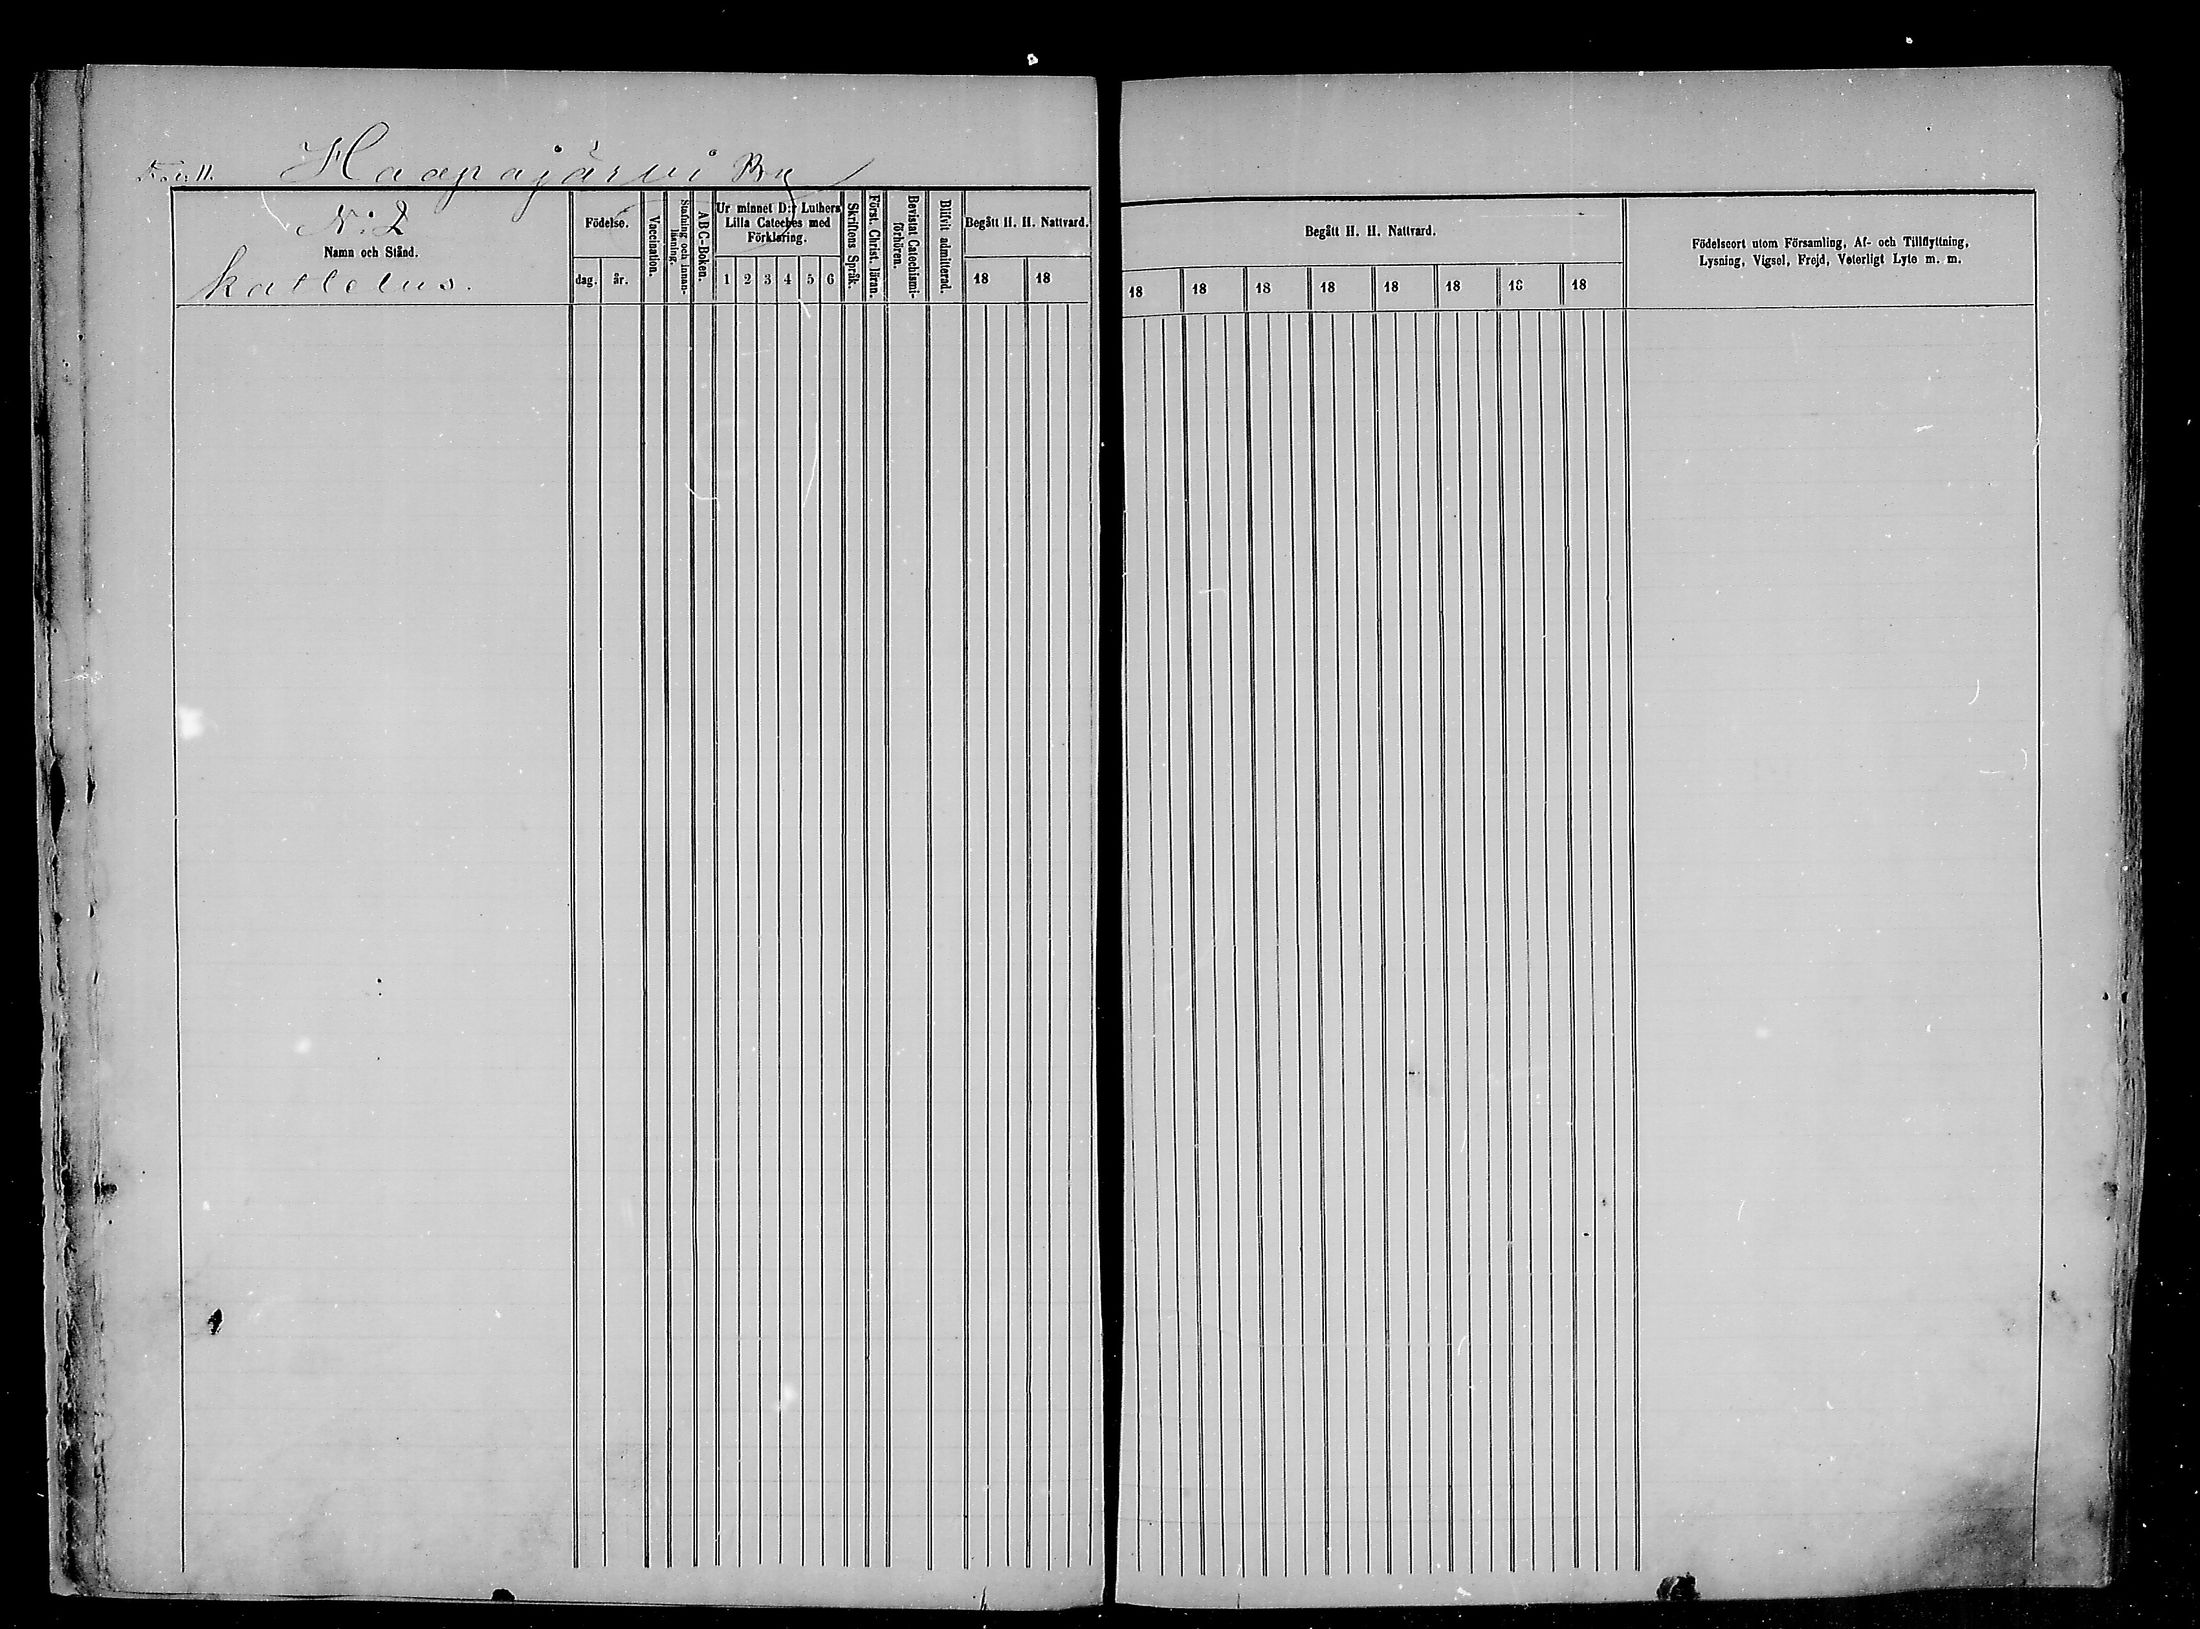 Haapajärvi By
N:2
Namn och Stånd.
Kattelus.
Födelse.
dag.
år.
Vaccination.
Stafning och Innan-
läsning.
ABC-Boken.
Ur minnet D:r Luthers
Lilla Cateches med
Förklaring.
1 2 3 4 5 6
Skriftens Språk.
Först. Christ. läran.
Bevistat Catechismi-
förhören.
Blifvit admitterad.
Begått H. H. Nattvard.
18 18
Begått H. H. Nattvard.
18 18 18 18 18 18 18 18
Födelseort utom Församling, Af- och Tillflyttning,
Lysning, Vigsel, Frejd, Veterligt Lyte m. m.